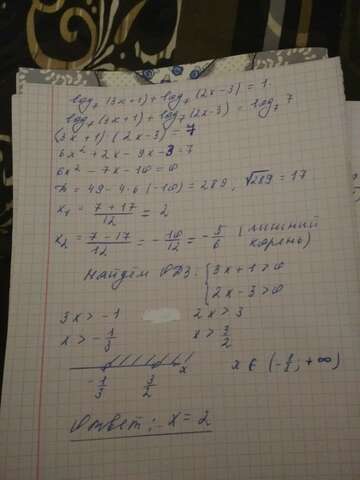 log₇(3x+1)+log₇(2x-3)=1.
log₇(3x+1)+log₇(2x-3)=log₇7
(3x+1)·(2x-3)=7
6x²+2x-9x-3=7
6x²-7x-10=0
D=49-4·6·(-10)=289, √289=17
x₁=(7+17)/12=2
x₂=(7-17)/12=-10/12=-5/6 (лишний корень)
Найдём ОДЗ: {3x+1>0
{2x-3>0
3x>-1 2x>3
x>-1/3 x>3/2
-1/3 3/2 x x∈(-1/2;+∞)
Ответ: x=2